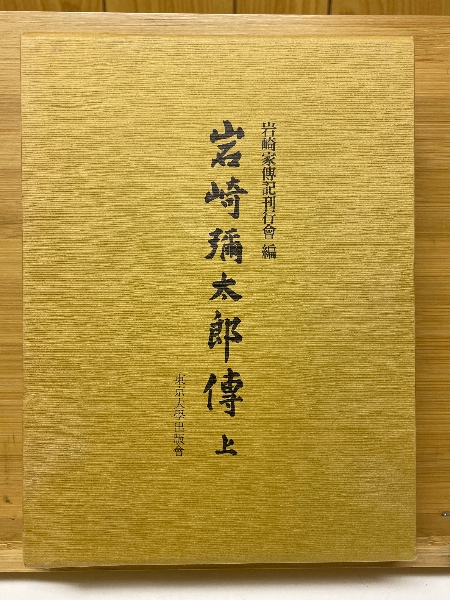 岩崎家傳記刊行會 編
岩崎彌太郎傳 上
東京大學出版會